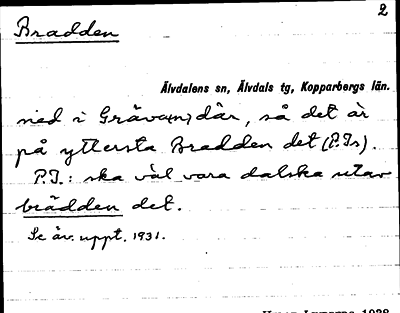 2
Bradden
Älvdalens sn, Älvdals tg, Kopparbergs län.
ned i Gräva(n) där, så det är
på yttersta Bradden det (P.Js).
P.J.: ska väl vara dalska utav
brädden det.
Se äv. uppt. 1931.